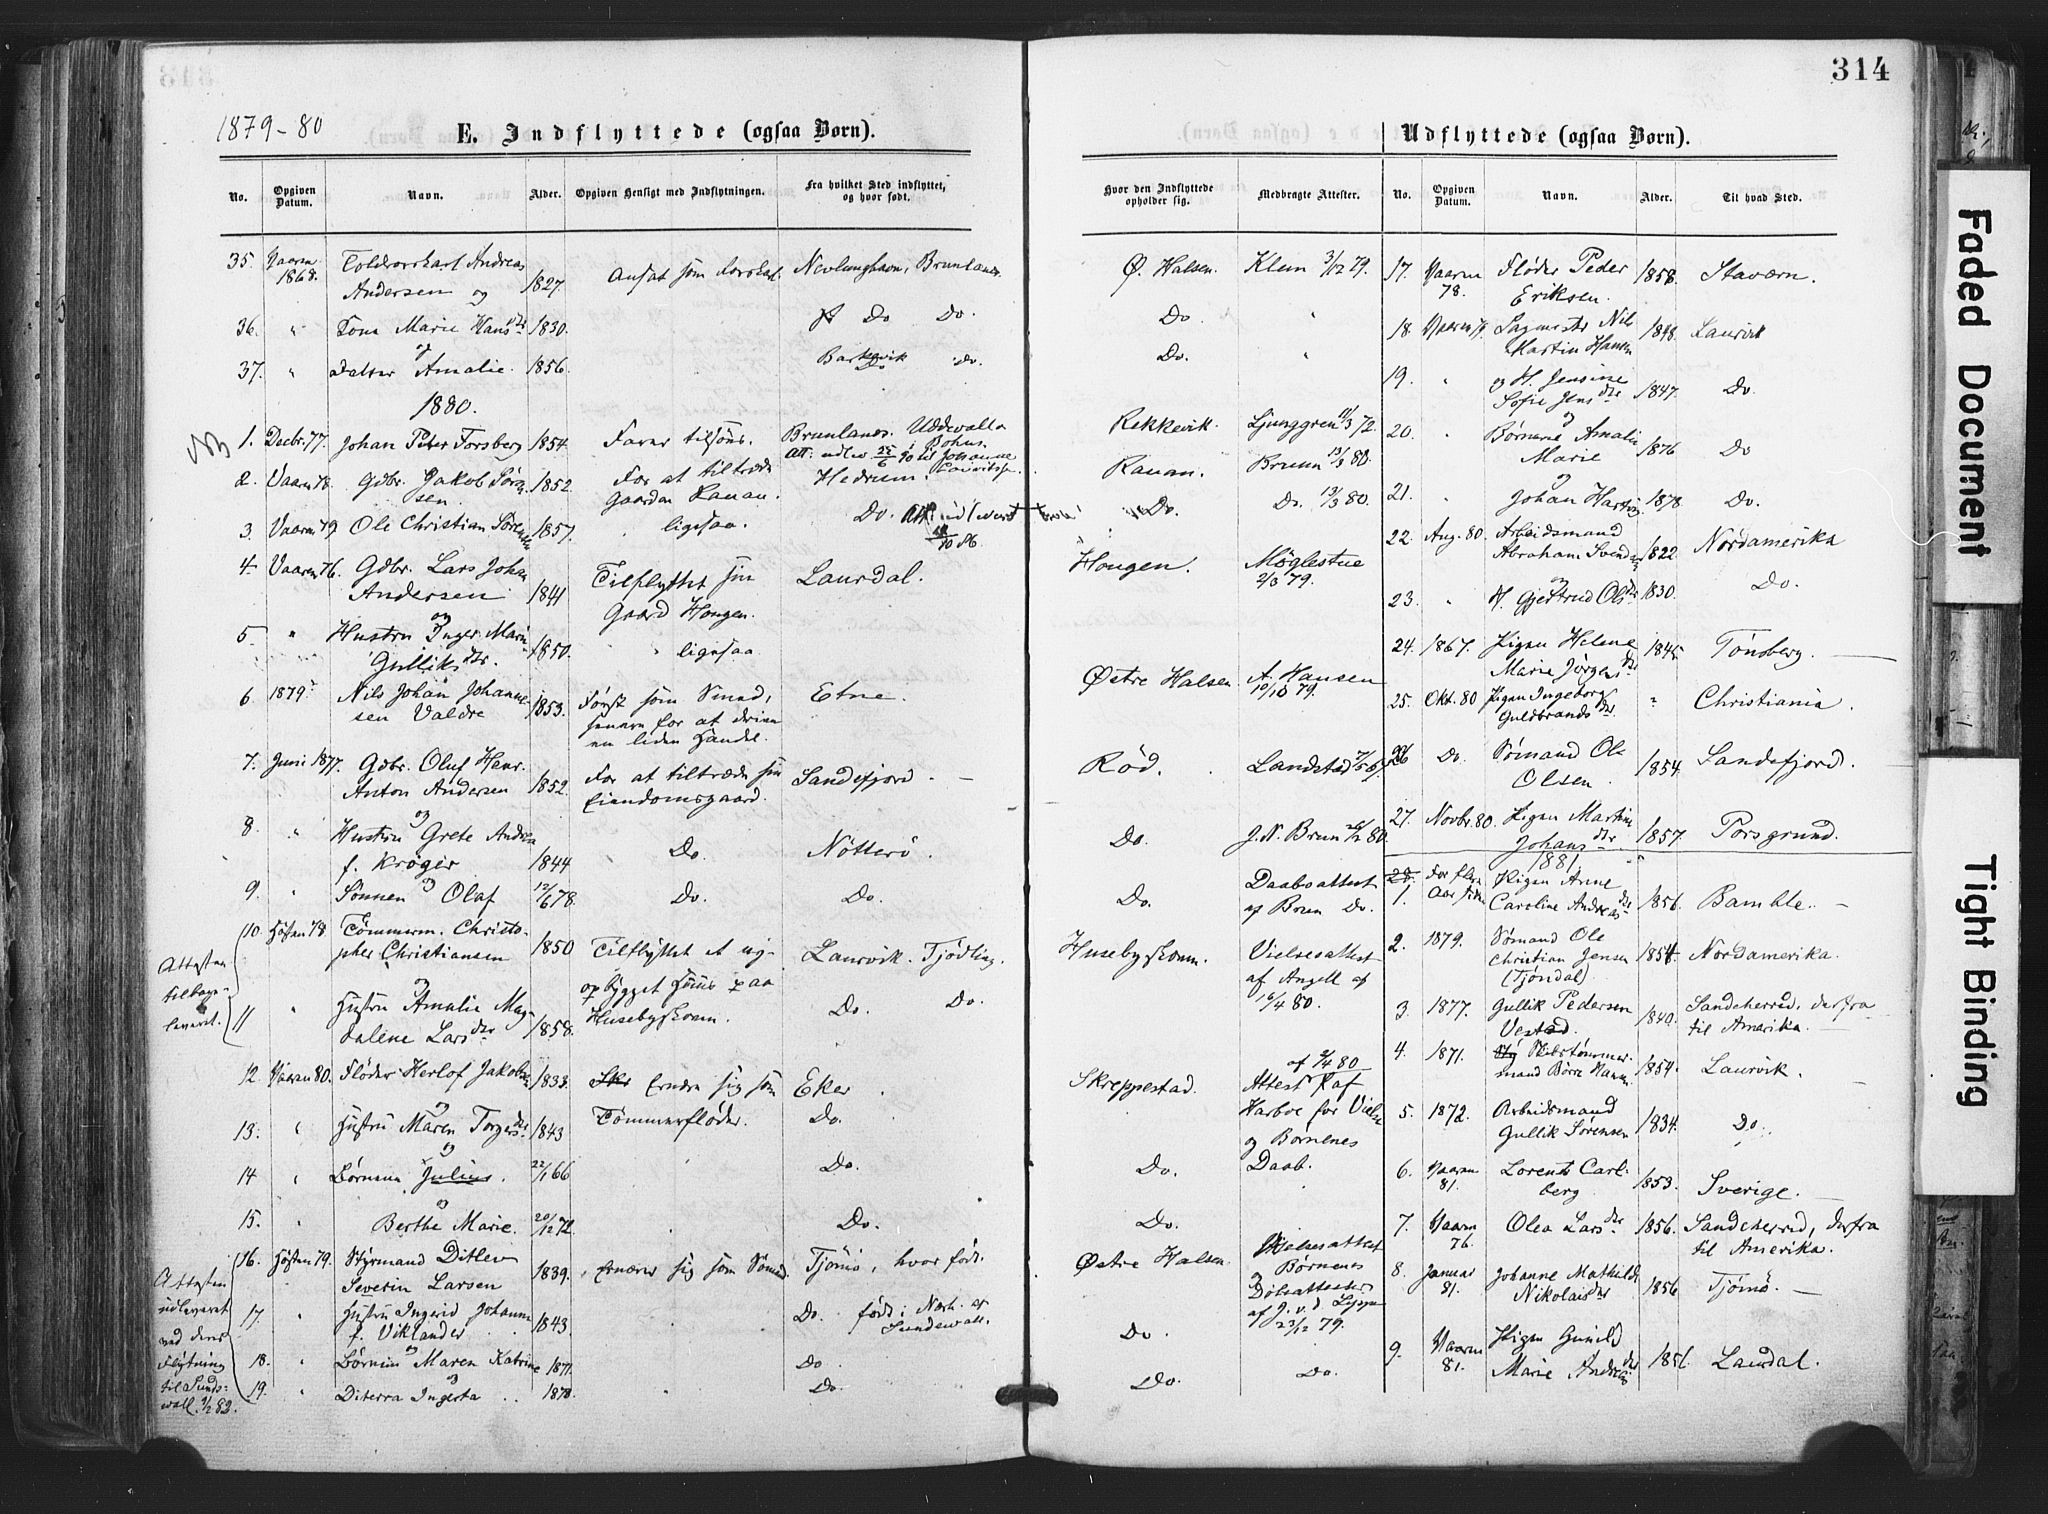 314
1879-80
E. Indflyttede (ogsaa Børn).
No. Opgiven Datum. Navn. Alder. Opgiven Hensigt med Indflytningen. Fra hvilket Sted indflyttet, og hvor født.
35. Vaaren 1868. Andreas Andersen og 1827. Ansat som Nevlunghavn, Brunlanes
36. " Marie Hans dtr 1830. Do Do.
og
37. " Datter Amalie. 1856. Barkevik Do.
1880.
NB 1. Decbr. 77. Johan Peter Forsberg 1854. Farer tilsøs. Brunlanes. Uddevalla Bohus.
2. Vaaren 78. Gdbr. Jakob Søren-
sen. 1852. For at tiltræde
Gaarden Ranan. Hedrum.
3. Vaaren 79 Ole Christian 1857. ligesaa. Do.
4. Vaaren 76. Gdbr. Lars Johan
Andersen 1841 Tilflyttet sin
Gaard Hougen. Laurdal.
og
5. " Hustru Inger Marie
Gulliks dtr. 1850. " ligesaa
6. 1879. Nils Johan Johanne-
sen Valdre 1853. Først som Smed,
senere for at drive
en liden Handel. Etne.
7. Juni 1877. Gdbr. Oluf Hans
Anton Andersen 1852. For at tiltræde sin
Eiendomsgaard. Sandefjord.
og
8. " Hustru Grete Andrea
f. Krøger 1844 Do. Nötterö.
og
9. " Sønnen Olaf 12/6 78. Do. Do.
10. Høsten 78 Tømmerm. Christo-
pher Christiansen 1850 Tilflyttet et ny-
opbygget Huus paa
Husebyskoven. Laurvik. Tjödling.
og
11 " Hustru Amalie Mag-
dalene Lars dtr 1858. Do. Do.
Attesten
tilbage-
leveret.
12. Vaaren 80. Fløder Herlof Jakobsen 1833. Ernærer sig som
Tømmerfløder. Eker.
og
13. " Hustru Maren Torgers dtr 1843 Do.
og
14 " Børnene Julius. 22/1 66 Do.
og
15. " Berthe Marie. 20/12 72. Do.
16. Høsten 79. Styrmand Ditlev
Severin Larsen 1839. Ernærer sig som Sømand. Tjömö, hvor født.
17. " Hustru Ingerid Johanne
f. Viklander 1843. Do. født i
18. " Børnene Maren Katrine 1871. Do.
og
19. " Ingerta 1878. Do.
Attesten
udleveret
ved deres
Flytning
til Sunds-
wall.
Udflyttede (ogsaa Børn).
Hvor den Indflyttede opholder sig. Medbragte Attester. No. Opgiven Datum. Navn. Alder. Til hvad Sted.
Ø. Halsen. Klem 3/12 79.
Do. "
Do. "
Rekkevik. Ljunggren
Ranan. Brunn 13/3 80.
Do. Do. 13/3 80.
Hougen. Møglestue
2/3 79.
Østre Halsen. A. Hansen
10/10 79.
Rød. Landstad
Do. J. N. Brun 80.
Do. Daabsattest
af Brun Do.
Husebyskoven. Vielsesattest
af Angell af
16/4 80.
Skreppestad. Attest af
Harboe for Vielse
og Børnenes
Daab.
Do.
Do.
Østre Halsen. Vielsesattest
Børnenes
Dåbsattester
23/12 79.
Do.
Do. Do.
17. Vaaren 78. Fløder Peder
Eriksen. 1858. Staværn.
18. Nils
Martin Hansen 1848. Laurvik
19. " og H. Jensine
Sofie Jens dtr 1847. Do.
og
20. " Børnene Amalie
Marie 1876 Do
og
21. " Johan Hartvig 1878. Do.
22. Aug. 80. Arbeidsmand
Abraham Svendsen 1822. Nordamerika
og
23. " H. Gjertrud Ols dtr 1830. Do.
24. 1867. Pigen Helene
Marie Jørgens dtr 1845. Tønsberg.
25. Okt. 80 Pigen Ingeborg
Guldbrands dtr. " Christiania.
26 Do. Sømand Ole
Olsen. 1854. Sandefjord.
27. Novbr. 80. Pigen Martine
Johans dtr. 1857. Porsgrund.
1881.
1. For flere Aar siden Pigen Anne
Caroline Andreas dtr 1856. Bamble.
2. 1879. Sømand Ole
Christian Jensen
(Tjøndal) 1854. Nordamerika.
3. 1877. Gullik Pedersen
Vestad. 1840. Sandeherred, derfra
til Amerika.
4. 1871. Skibstømmer-
mand Børre Hansen 1854. Laurvik.
5. 1872. Arbeidsmand
Gullik Sørensen 1834. Do.
6. Vaaren 81. Lorents Carl-
berg 1853. Sverige.
7. Vaaren 76. Olea Lars dtr 1856. Sandeherred, derfra
til Amerika.
8. Januar 81. Johanne Mathilde
Nikolais dtr 1856 Tjömö.
9. Vaaren 81. Pigen Gunild
Marie Andreas dtr 1851. Laurdal.
Faded Document
Tight Binding